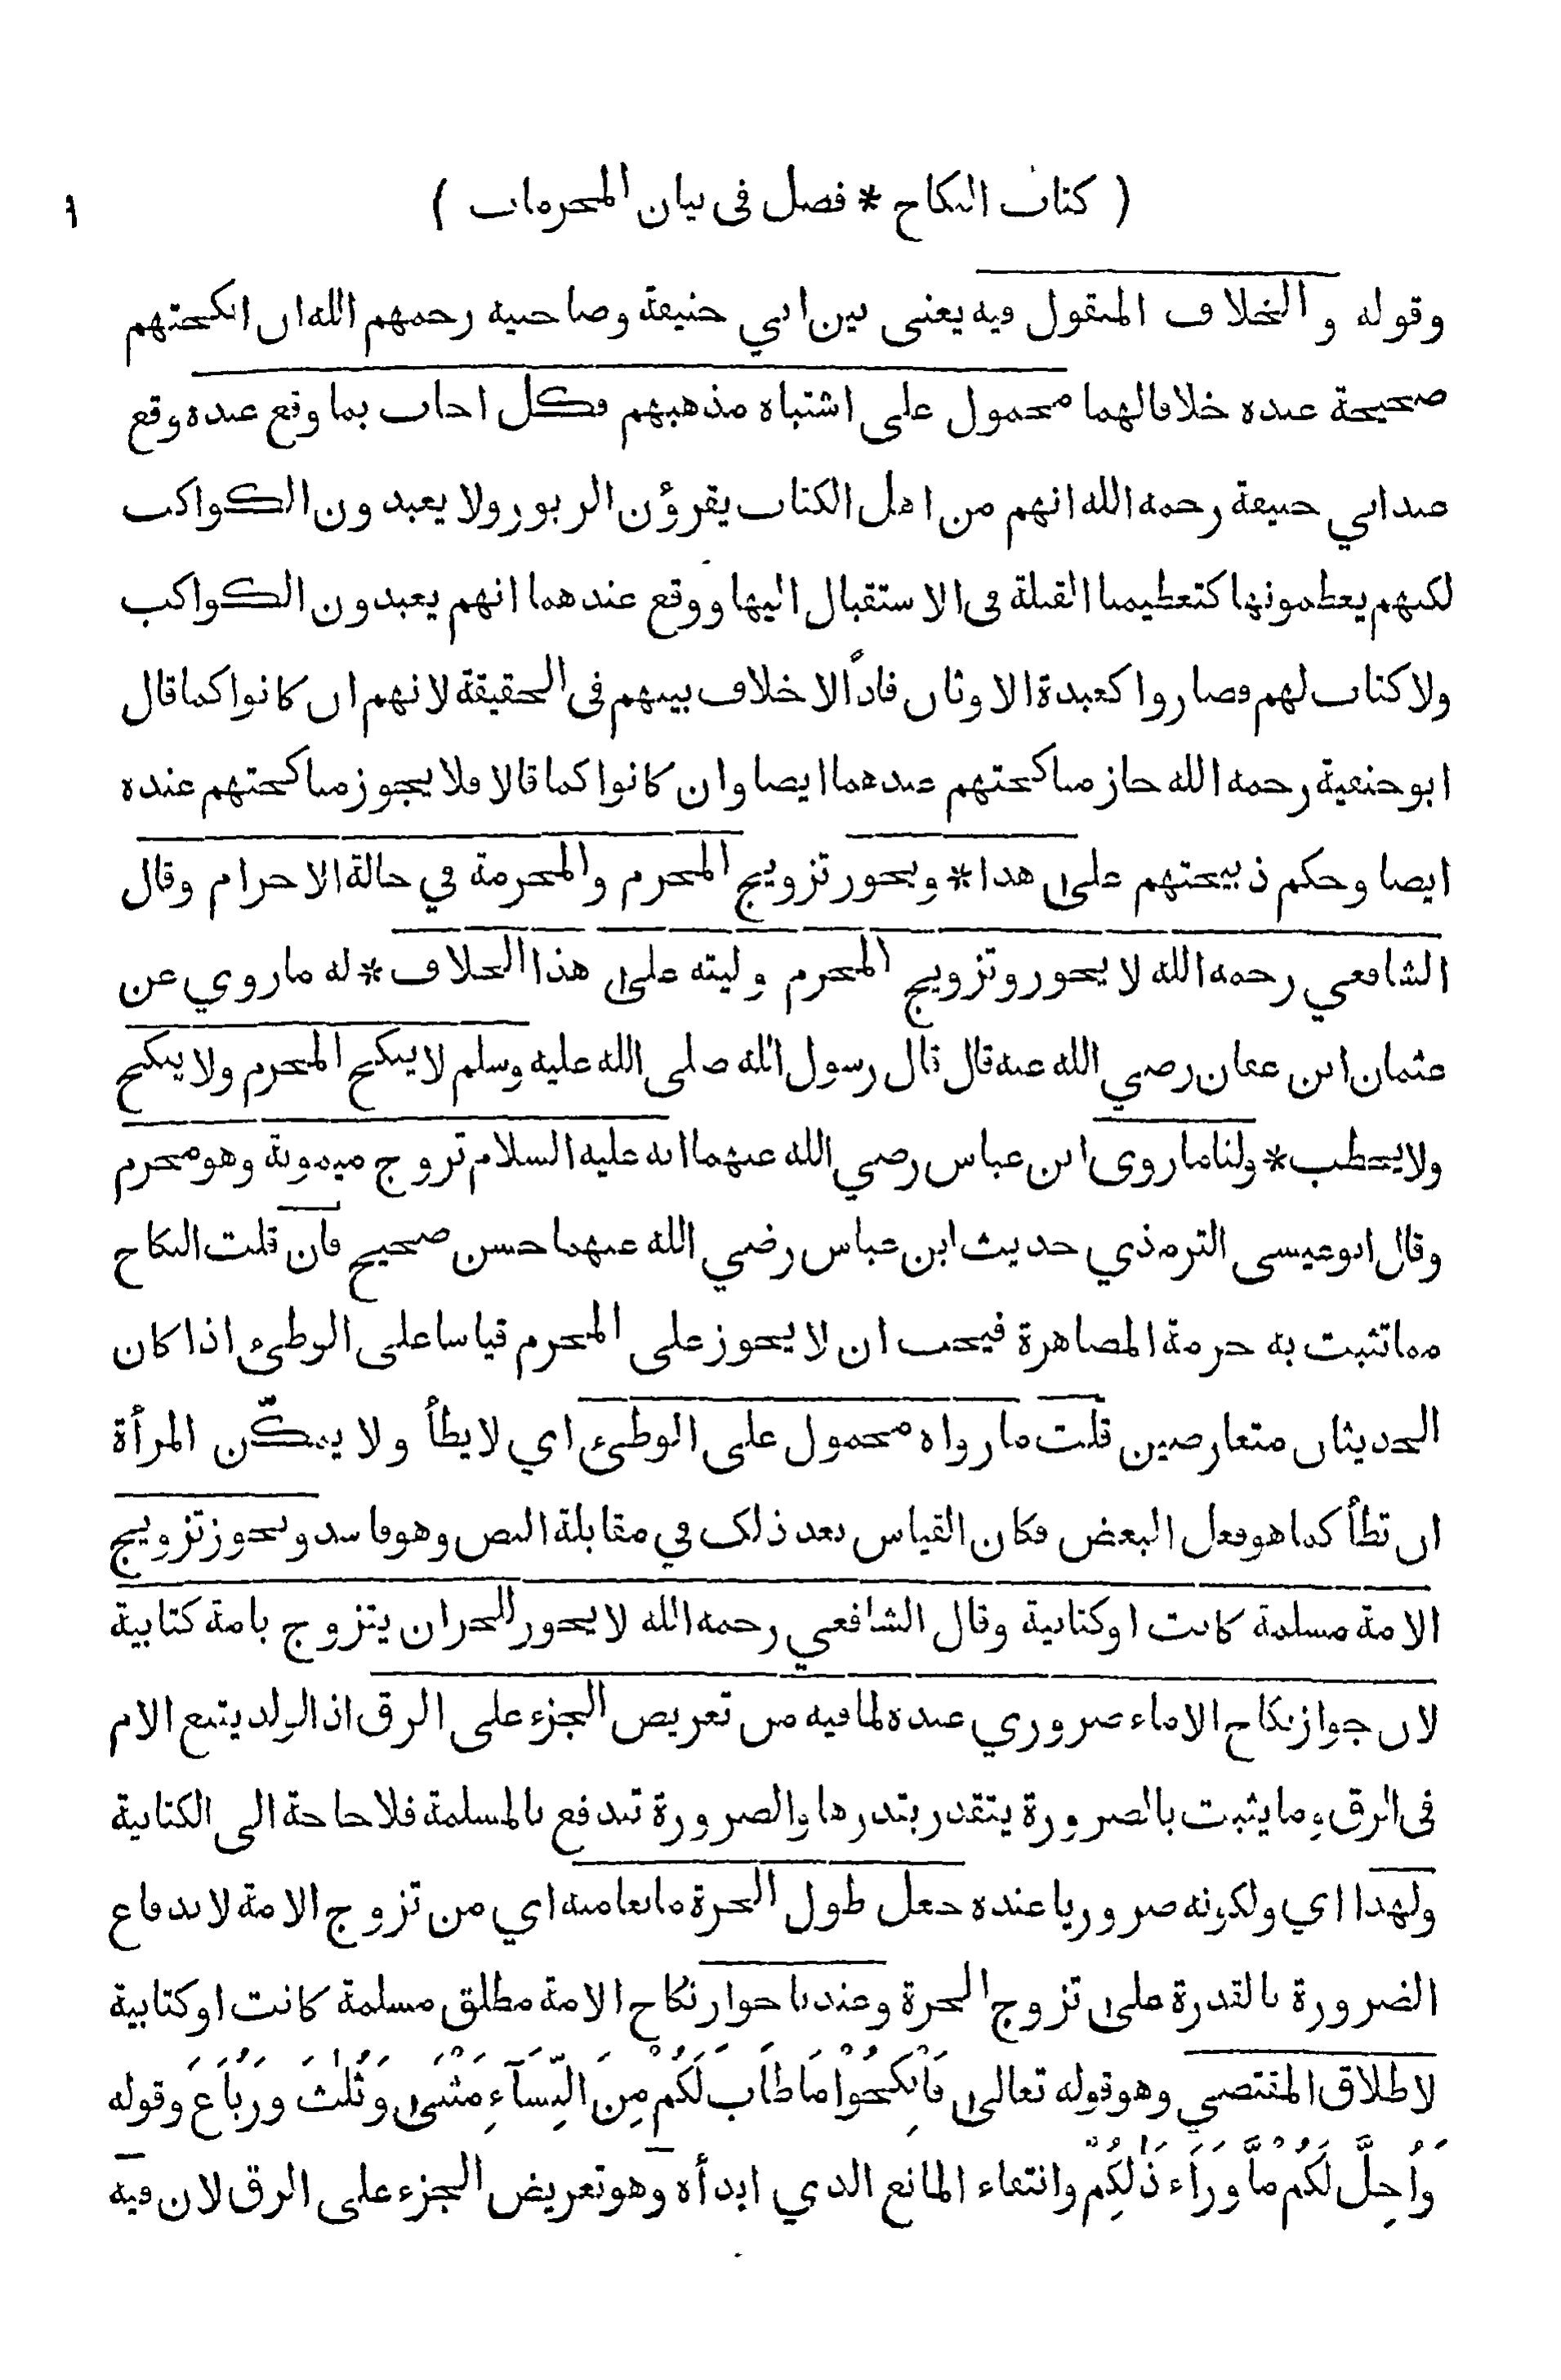 ( كتاب النكاح * فصل في بيان المحرمات ) ٩
وقوله والخلاف المنقول فيه يعني بين ابي حنيفة وصاحبيه رحمهم الله ان انكحتهم
صحيحة عنده خلافا لهما محمول على اشتباه مذهبهم فكل اجاب بما وقع عنده وقع
عند ابي حنيفة رحمه الله انهم من اهل الكتاب يقرؤن الزبور ولا يعبدون الكواكب
لكنهم يعظمونها كتعظيمنا القبلة في الاستقبال اليها ووقع عندهما انهم يعبدون الكواكب
ولا كتاب لهم فصاروا كعبدة الاوثان فاذًا لا خلاف بينهم في الحقيقة لانهم ان كانوا كما قال
ابو حنيفة رحمه الله جاز مناكحتهم عندهما ايضا وان كانوا كما قالا فلا يجوز مناكحتهم عنده
ايضا وحكم ذبيحتهم على هذا * ويجوز تزويج المحرم والمحرمة في حالة الاحرام وقال
الشافعي رحمه الله لا يجوز وتزويج المحرم وليته على هذا الخلاف * له ما روي عن
عثمان ابن عفان رضي الله عنه قال قال رسول الله صلى الله عليه وسلم لا ينكح المحرم ولا ينكح
ولا يخطب * ولنا ما روى ابن عباس رضي الله عنهما انه عليه السلام تزوج ميمونة وهو محرم
وقال ابو عيسى الترمذي حديث ابن عباس رضي الله عنهما حسن صحيح فان قلت النكاح
مما تثبت به حرمة المصاهرة فيجب ان لا يجوز على المحرم قياسا على الوطئ اذا كان
الحديثان متعارضين قلت ما رواه محمول على الوطئ اي لا يطأ ولا يمكّن المرأة
ان تطأ كما هو فعل البعض فكان القياس بعد ذلك في مقابلة النص وهو فاسد ويجوز تزويج
الامة مسلمة كانت او كتابية وقال الشافعي رحمه الله لا يجوز للحر ان يتزوج بامة كتابية
لان جواز نكاح الاماء ضروري عنده لما فيه من تعريض الجزء على الرق اذ الولد يتبع الام
في الرق وما يثبت بالضرورة يتقدر بقدرها والضرورة تندفع بالمسلمة فلا حاجة الى الكتابية
ولهذا اي ولكونه ضروريا عنده جعل طول الحرة مانعا منه اي من تزوج الامة لاندفاع
الضرورة بالقدرة على تزوج الحرة وعندنا جواز نكاح الامة مطلق مسلمة كانت او كتابية
لاطلاق المقتضي وهو قوله تعالى فَانْكِحُوْا مَا طَابَ لَكُمْ مِنَ النِّسَآءِ مَثْنٰى وَثُلٰثَ وَرُبَاعَ وقوله
وَاُحِلَّ لَكُمْ مَّا وَرَآءَ ذٰلِكُمْ وانتفاء المانع الذي ابدأه وهو تعريض الجزء على الرق لان فيه